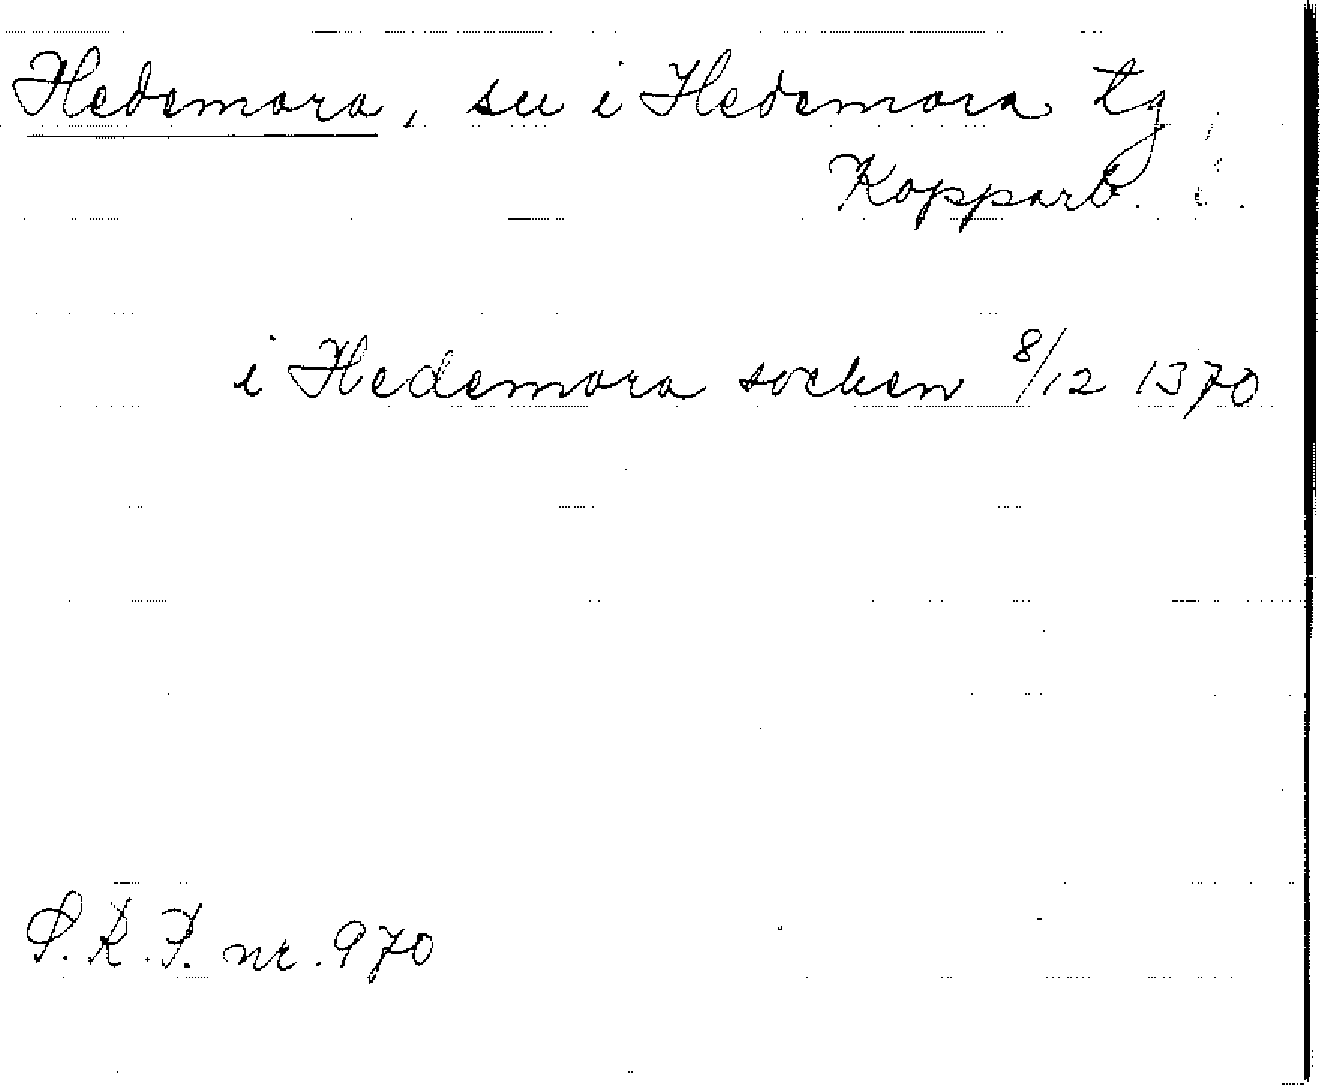 Hedemora, sn i Hedemora tg
Kopparb. l.
i Hedemora socken 8/12 1370
S.R.P. nr. 970